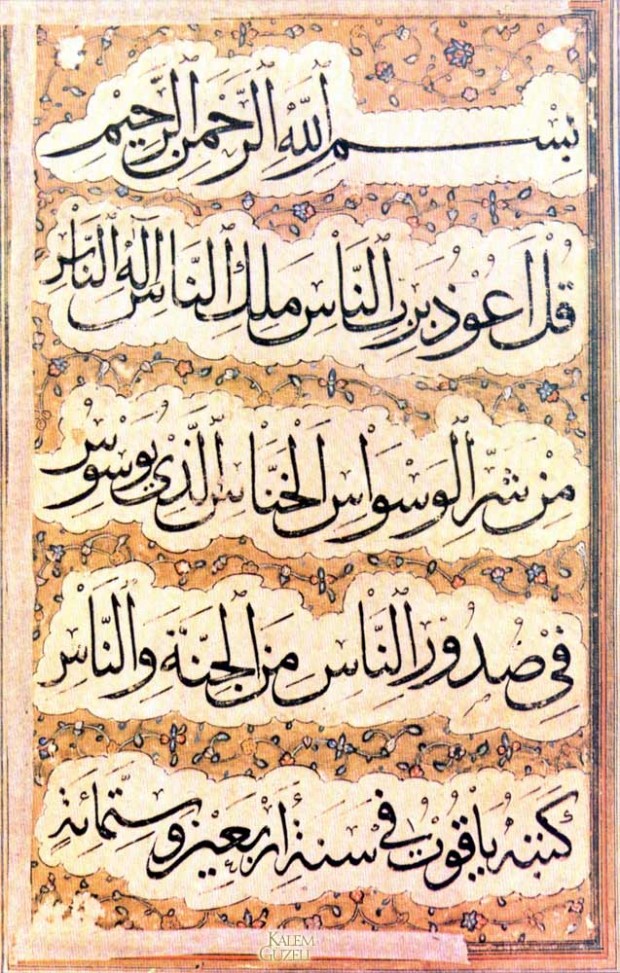 بِسْمِ اللّٰهِ الرَّحْمٰنِ الرَّحِيْمِ
قُلْ اَعُوْذُ بِرَبِّ النَّاسِ مَلِكِ النَّاسِ اِلٰهِ النَّاسِ
مِنْ شَرِّ الْوَسْوَاسِ الْخَنَّاسِ الَّذِيْ يُوَسْوِسُ
فِيْ صُدُوْرِ النَّاسِ مِنَ الْجِنَّةِ وَالنَّاسِ
كَتَبَهُ يَاقُوْت فِيْ سَنَةِ اَرْبَعِيْنَ وَسِتِّمِائَةٍ
KALEM
GÜZELİ